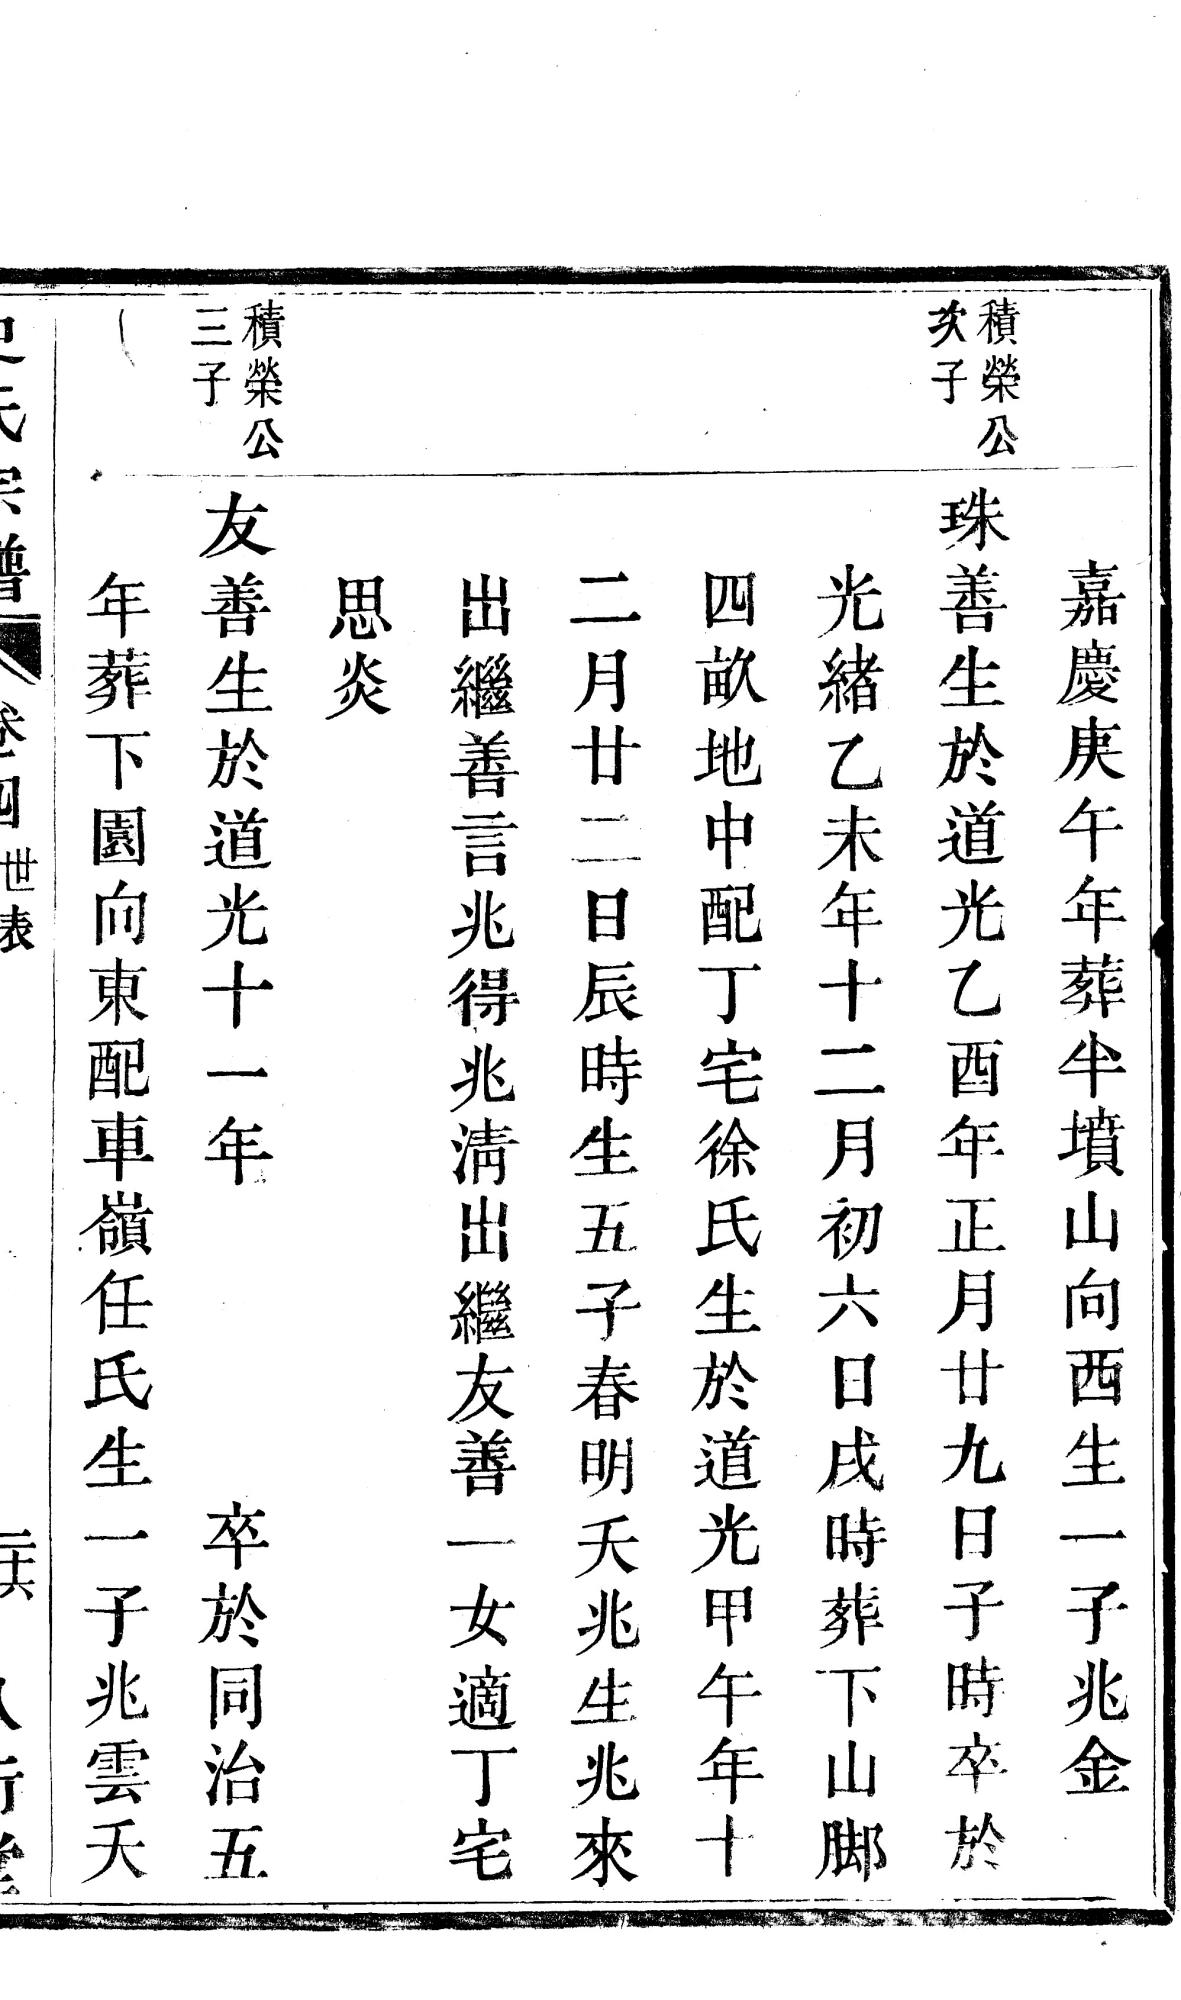 嘉慶庚午年葬半墳山向西生一子兆金
積榮公
次子
珠善生於道光乙酉年正月廿九日子時卒於
光緒乙未年十二月初六日戌時葬下山脚
四畝地中配丁宅徐氏生於道光甲午年十
二月廿二日辰時生五子春明夭兆生兆來
出繼善言兆得兆淸出繼友善一女適丁宅
思炎
積榮公
三子
友善生於道光十一年 卒於同治五
年葬下園向東配車嶺任氏生一子兆雲夭
氏宗譜 卷四 世表 二十六